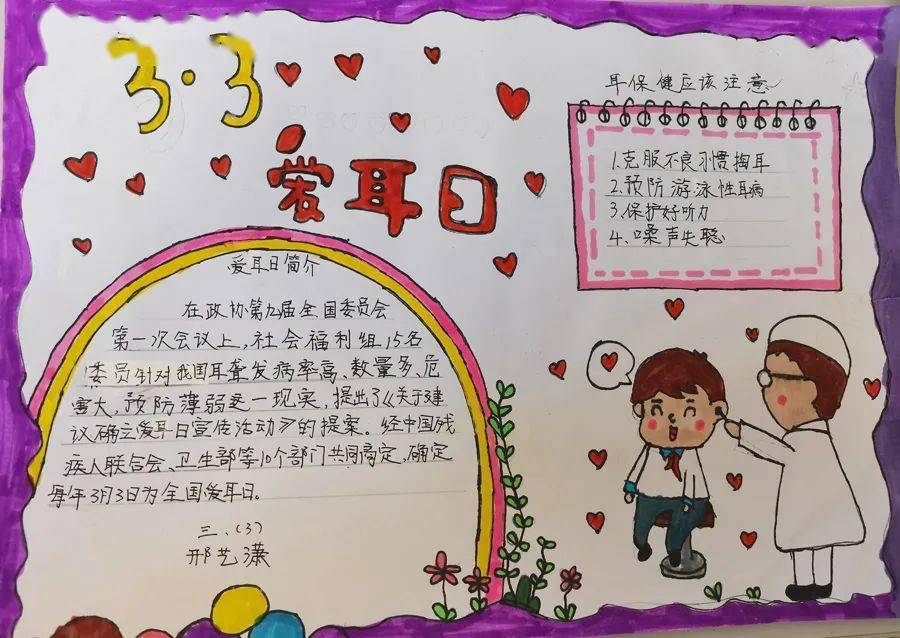 3·3
爱耳日
爱耳日简介
在政协第九届全国委员会
第一次会议上,社会福利组15名
委员针对我国耳聋发病率高、数量多、危
害大,预防薄弱这一现实,提出了《关于建
议确立爱耳日宣传活动》的提案。经中国残
疾人联合会、卫生部等10个部门共同商定,确定
每年3月3日为全国爱耳日。
三、(3)
邢艺潇
耳保健应该注意
1.克服不良习惯掏耳
2.预防游泳性耳病
3.保护好听力
4.噪声失聪